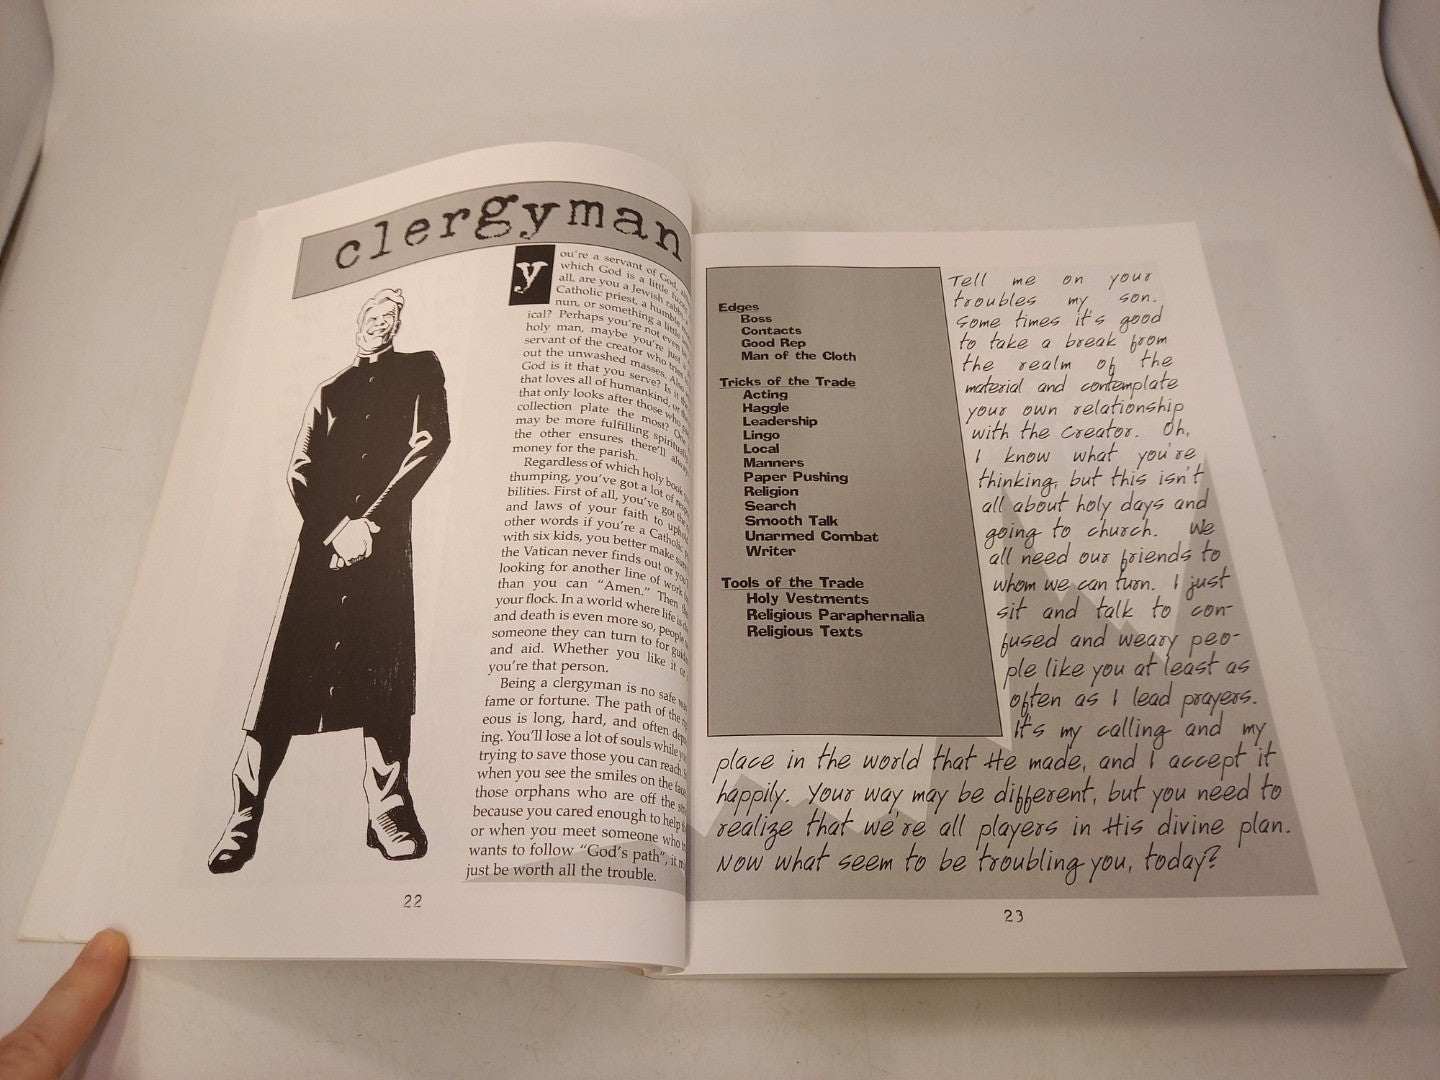 clergyman
You're a servant of God,
which God is a little
all, are you a Jewish rabbi, a
Catholic priest, a humble
nun, or something a little
ical? Perhaps you're not even
holy man, maybe you're just
servant of the creator who tries
out the unwashed masses. Also
God is it that you serve? Is it the
that loves all of humankind, or the
that only looks after those who
collection plate the most? One
may be more fulfilling spiritually
the other ensures there'll always
money for the parish.
Regardless of which holy book
thumping, you've got a lot of
bilities. First of all, you've got the
and laws of your faith to uphold
other words if you're a Catholic
with six kids, you better make sure
the Vatican never finds out or you'll
looking for another line of work
than you can "Amen." Then
your flock. In a world where life is
and death is even more so, people
someone they can turn to for
and aid. Whether you like it or
you're that person.
Being a clergyman is no safe
fame or fortune. The path of the
eous is long, hard, and often
ing. You'll lose a lot of souls while
trying to save those you can reach.
when you see the smiles on the
those orphans who are off the
because you cared enough to help
or when you meet someone who
wants to follow "God's path", it
just be worth all the trouble.
22
Edges
Boss
Contacts
Good Rep
Man of the Cloth
Tricks of the Trade
Acting
Haggle
Leadership
Lingo
Local
Manners
Paper Pushing
Religion
Search
Smooth Talk
Unarmed Combat
Writer
Tools of the Trade
Holy Vestments
Religious Paraphernalia
Religious Texts
Tell me on your
troubles my son.
Some times it's good
to take a break from
the realm of the
material and contemplate
your own relationship
with the Creator. Oh,
I know what you're
thinking, but this isn't
all about holy days and
going to church. We
all need our friends to
whom we can turn. I just
sit and talk to con-
fused and weary peo-
ple like you at least as
often as I lead prayers.
It's my calling and my
place in the world that He made, and I accept it
happily. Your way may be different, but you need to
realize that we're all players in His divine plan.
Now what seem to be troubling you, today?
23